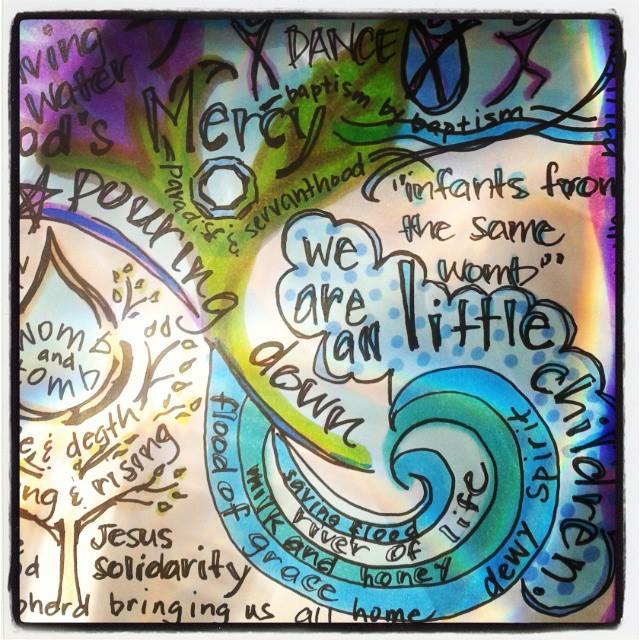 DANCE
water
Mercy
baptism by
baptism
pouring
down
& servanthood
"infants from
the same
womb"
we
are
all
little
children.
womb
and
tomb
& death
& rising
Jesus
solidarity
bringing us all home
flood of grace
milk and honey
saving flood
river of life
dewy spirit